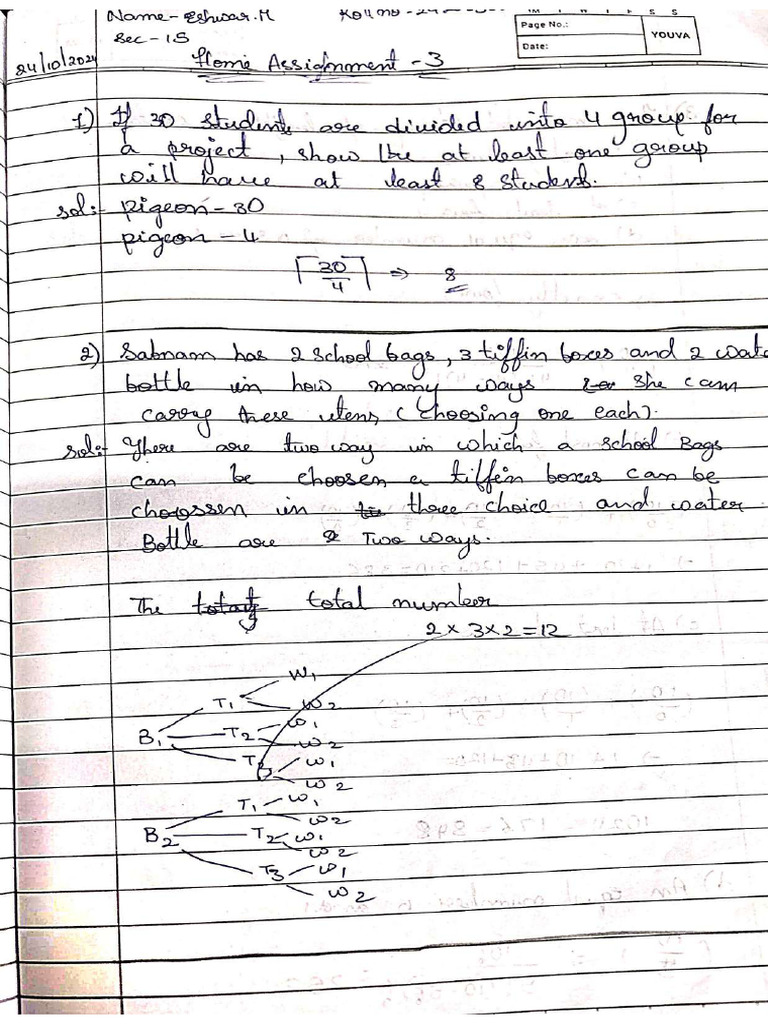 Name- Eshwar.M
Roll no - 24
M T W T F S S
Page No.:
YOUVA
Date:
Sec - 15
24/10/2024
Home Assignment - 3
1) If 30 students are divided into 4 group for
a project, show the at least one group
will have at least 8 students.
sol:- pigeon - 30
pigeon - 4
⌈30/4⌉ ⇒ 8
2) Sabnam has 2 school bags, 3 tiffin boxes and 2 wate
bottle in how many ways she can
carry these items, (choosing one each).
sol:- There are two way in which a school Bags
can be choosen a tiffin boxes can be
choossen in three choice and water
Bottle are 2 Two ways.
The total total number
2 x 3 x 2 = 12
W1
T1 W2
W1
B1 T2 W2
T3 W1
W2
T1 W1
W2
B2 T2 W1
W2
T3 W1
W2